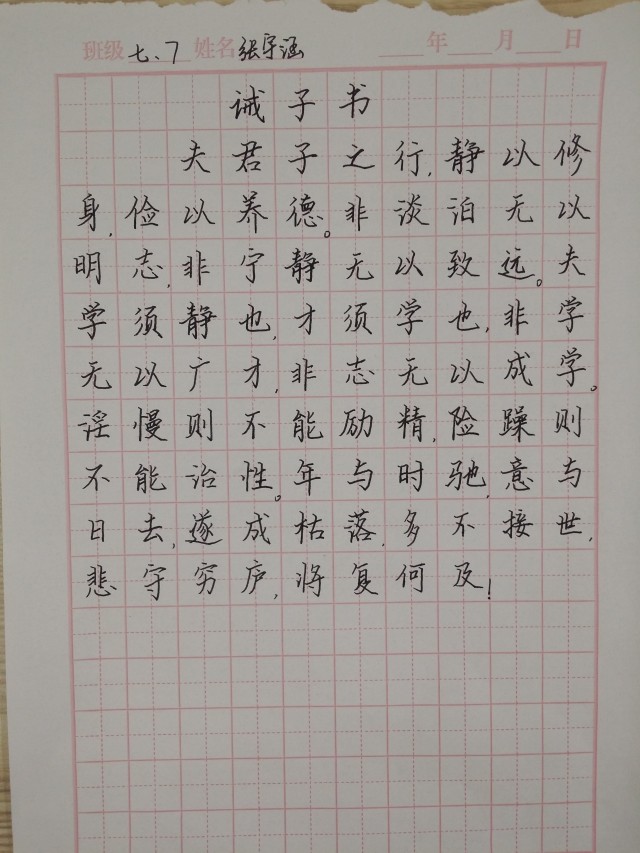 班级 七、7 姓名 张宇涵 年 月 日
诫子书
夫君子之行,静以修
身,俭以养德。非淡泊无以
明志,非宁静无以致远。夫
学须静也,才须学也,非学
无以广才,非志无以成学。
淫慢则不能励精,险躁则
不能治性。年与时驰,意与
日去,遂成枯落,多不接世,
悲守穷庐,将复何及!